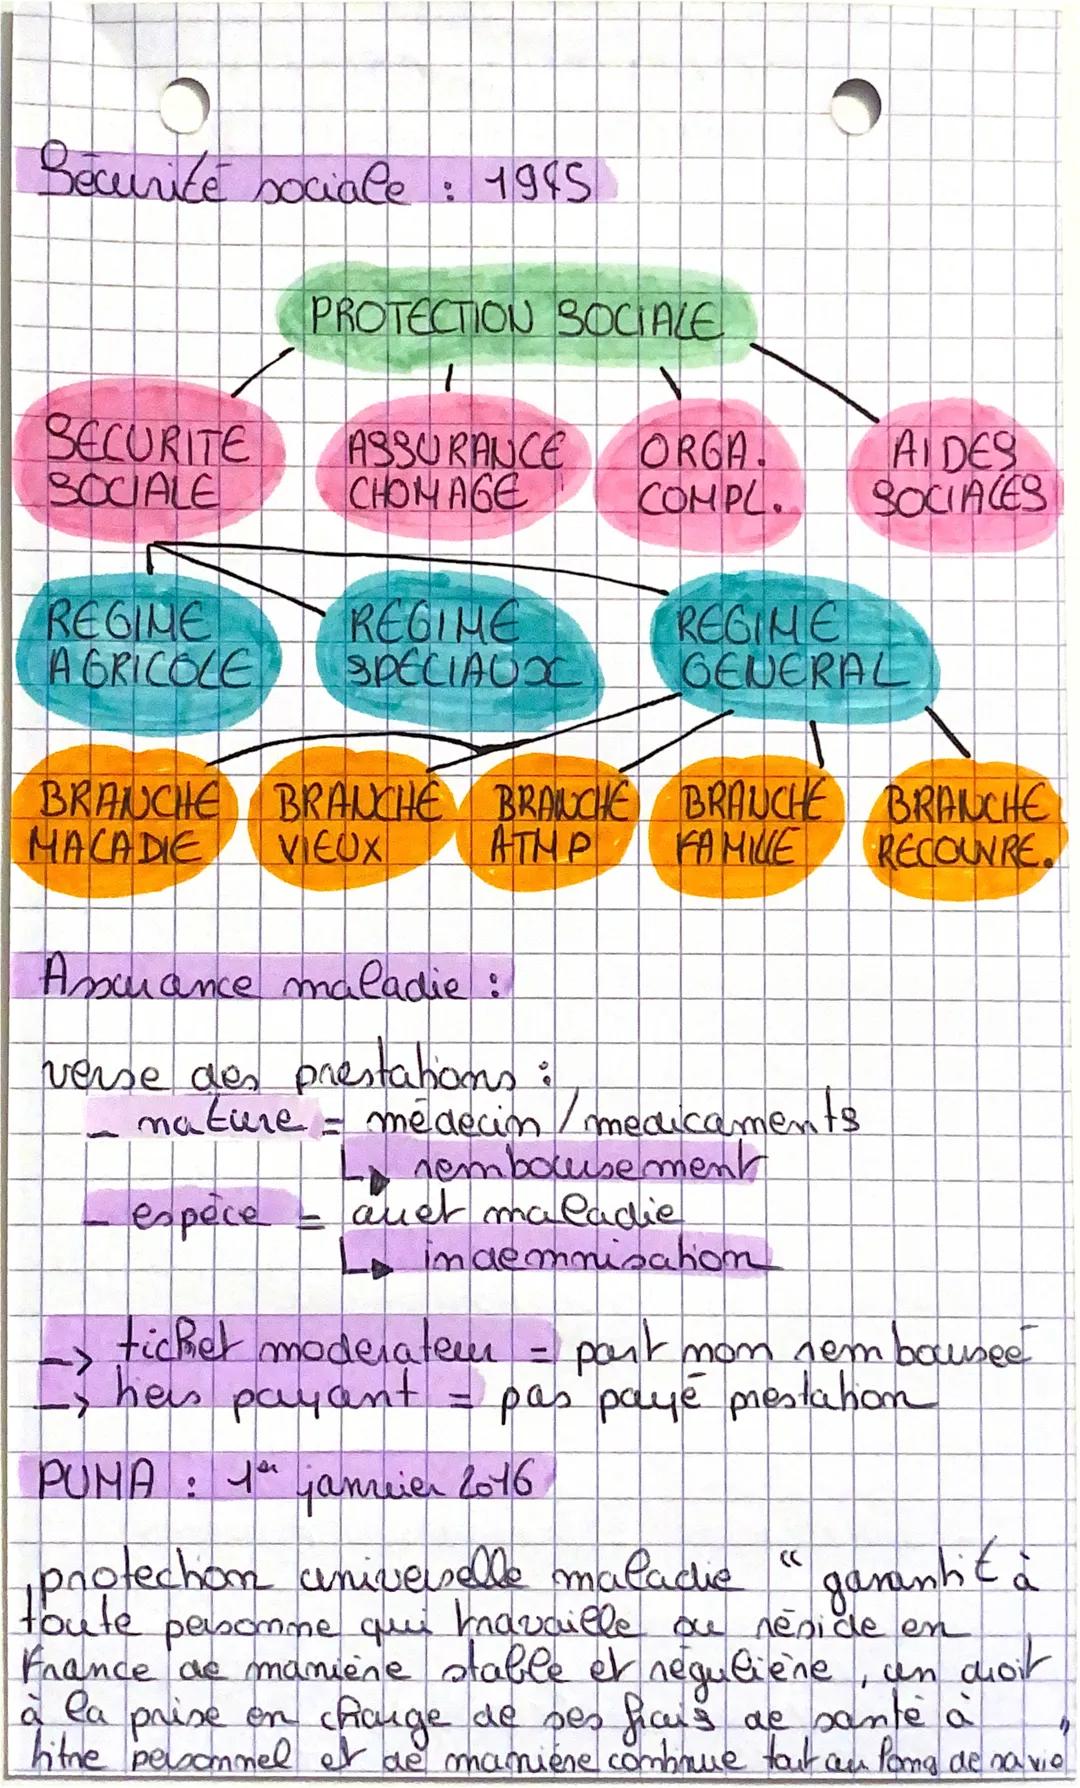 Sécurité sociale : 1945
PROTECTION SOCIALE
SECURITE SOCIALE
ASSURANCE CHOMAGE
ORGA. COMPL.
AIDES SOCIALES
REGIME AGRICOLE
REGIME SPECIAUX
REGIME GENERAL
BRANCHE MALADIE
BRANCHE VIEUX
BRANCHE ATMP
BRANCHE FAMILLE
BRANCHE RECOUVRE.
Assurance maladie :
verse des prestations :
- nature = médecin / medicaments
↳ remboursement
- espèce = arret maladie
↳ indemnisation
-> ticket moderateur = part non remboursée
-> tiers payant = pas payé prestation
PUMA : 1er janvier 2016
protection universelle maladie " garantit à
toute personne qui travaille ou réside en
France de manière stable et régulière, un droit
à la prise en charge de ses frais de santé à
titre personnel et de manière continue tout au long de sa vie "